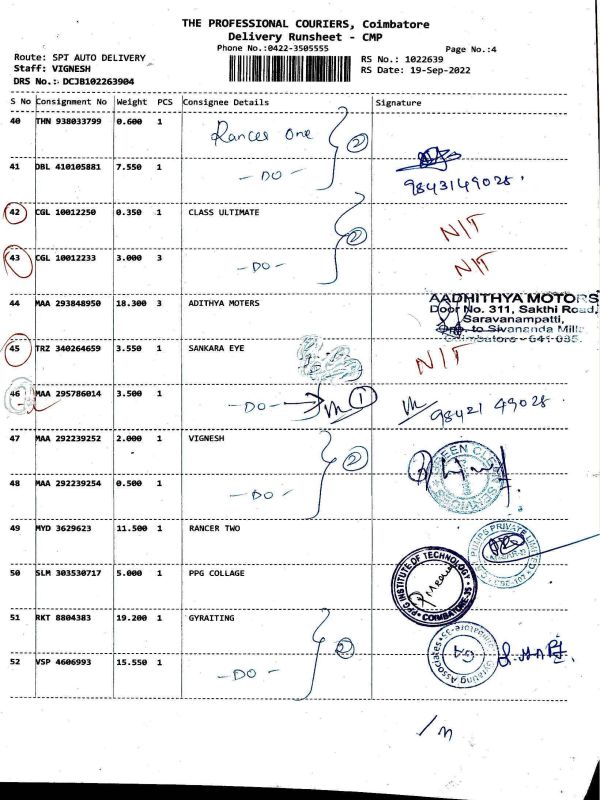 THE PROFESSIONAL COURIERS, Coimbatore
Delivery Runsheet - CMP
Phone No.:0422-3505555
Page No.:4
Route: SPT AUTO DELIVERY
RS No.: 1022639
Staff: VIGNESH
RS Date: 19-Sep-2022
DRS No.: DCJB102263904
S No Consignment No Weight PCS Consignee Details Signature
40 THN 938033799 0.600 1 Rances One 2
41 DBL 410105881 7.550 1 - DO - 9843149028.
42 CGL 10012250 0.350 1 CLASS ULTIMATE 2 N/T
43 CGL 10012233 3.000 3 - DO - N/T
44 MAA 293848950 18.300 3 ADITHYA MOTERS
AADHITHYA MOTORS
Door No. 311, Sakthi Road,
Saravanampatti,
Opp. to Sivananda Mills
Coimbatore - 641 035.
45 TRZ 340264659 3.550 1 SANKARA EYE N/T
46 MAA 295786014 3.500 1 - DO - 1 98421 49028.
47 MAA 292239252 2.000 1 VIGNESH 2
48 MAA 292239254 0.500 1 - DO -
49 MYD 3629623 11.500 1 RANCER TWO
50 SLM 303530717 5.000 1 PPG COLLAGE
PPG INSTITUTE OF TECHNOLOGY
COIMBATORE-35
51 RKT 8804383 19.200 1 GYRAITING 2
52 VSP 4606993 15.550 1 - DO -
Gyrating Associates
GA